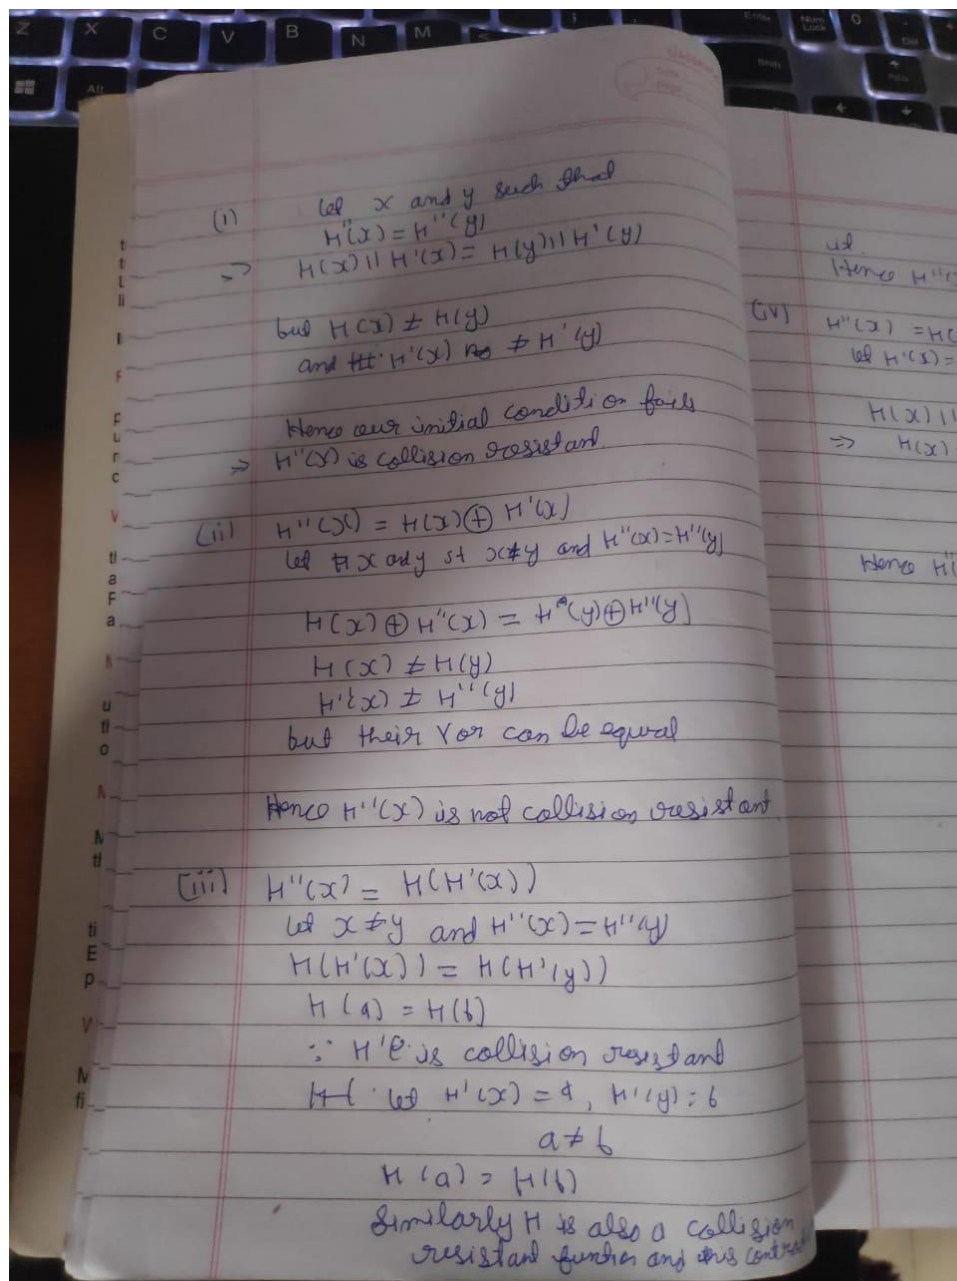 Z X C V B N M <
Enter
Num Lock
0
Del
Alt
Shift
classmate
Date
Page
(i) let x and y such that
H''(x) = H''(y)
=> H(x) || H'(x) = H(y) || H'(y)
but H(x) ≠ H(y)
and H'(x) ≠ H'(y)
Hence our initial condition fails
=> H''(x) is collision resistant
(ii) H''(x) = H(x) ⊕ H'(x)
let x and y st x≠y and H''(x)=H''(y)
H(x) ⊕ H''(x) = H(y) ⊕ H''(y)
H(x) ≠ H(y)
H'(x) ≠ H''(y)
but their Xor can be equal
Hence H''(x) is not collision resistant
(iii) H''(x) = H(H'(x))
let x ≠ y and H''(x) = H''(y)
H(H'(x)) = H(H'(y))
H(a) = H(b)
∵ H' is collision resistant
let H'(x) = a, H'(y) = b
a ≠ b
H(a) = H(b)
Similarly H is also a collision
resistant function and this contra
Hence H''(
(iv) H''(x) = H(
let H'(x) =
H(x) ||
=> H(x)
Hence H'(